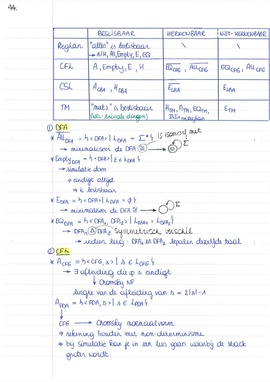 44.
BESLISBAAR HERKENBAAR NIET-HERKENBAAR
Regulier "alles" is beslisbaar \ \
→ A, H, All, Empty, E, EQ
CFL A, Empty, E, H EQ_CFG, All_CFG EQ_CFG, All_CFG
CSL A_CSA, H_CSA E_LBA E_LBA
TM "niets" is beslisbaar H_TM, A_TM, EQ_TM, E_TM
(wel: triviale dingen)
① DFA
* All_DFA = {<DFA> | L_DFA = Σ*}
is isomorf met
→ minimaliseer de DFA
Σ
* Empty_DFA = {<DFA> | ε ∈ L_DFA}
→ simulatie dom
→ eindige altijd
→ is beslisbaar
* E_DFA = {<DFA> | L_DFA = ∅}
→ minimaliseer de DFA
Σ
* EQ_DFA = {<DFA₁, DFA₂> | L_DFA₁ = L_DFA₂}
→ DFA₁ Δ DFA₂ symmetrisch verschil
→ indien leeg: DFA₁ en DFA₂ bepalen dezelfde taal
② CFL
* A_CFG = {<CFG, s> | s ∈ L_CFG}
→ ∃ afleiding die op s eindigt
↳ Chomsky NF
lengte van de afleiding van s = 2|s|-1
A_PDA = {<PDA, s> | s ∈ L_PDA}
↓
CFG → Chomsky normaalvorm
→ rekening houden met non-determinisme
→ bij simulatie kan je in een lus gaan waarbij de stack
groter wordt.